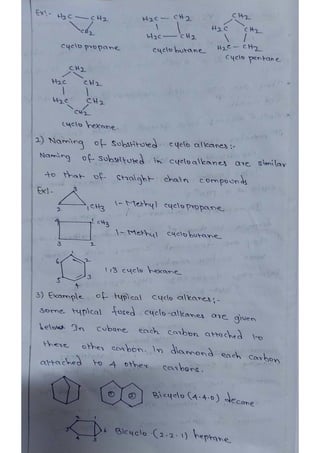 Ex:- H2C — CH2   H2C — CH2   CH2
CH2   H2C — CH2   H2C   CH2
H2C — CH2
cyclo propane   cyclo butane   cyclo pentane
CH2
H2C   CH2
H2C   CH2
CH2
cyclo hexane
2) Naming of substituted cyclo alkanes :-
Naming of substituted in cycloalkanes are similar
to that of straight chain compounds
Ex:-
3   2   1 CH3   1- Methyl cyclopropane
4   1 CH3
3   2   1- Methyl cyclobutane
1
6   2
5   3
4
1,3 cyclo hexane
3) Example of typical cyclo alkanes;-
some typical fused cyclo-alkanes are given
below In cubane each carbon attached to
three other carbon. In diamond each carbon
attached to 4 other carbons.
Bicyclo (4.4.0) decane
Bicyclo - (2.2.1) heptane